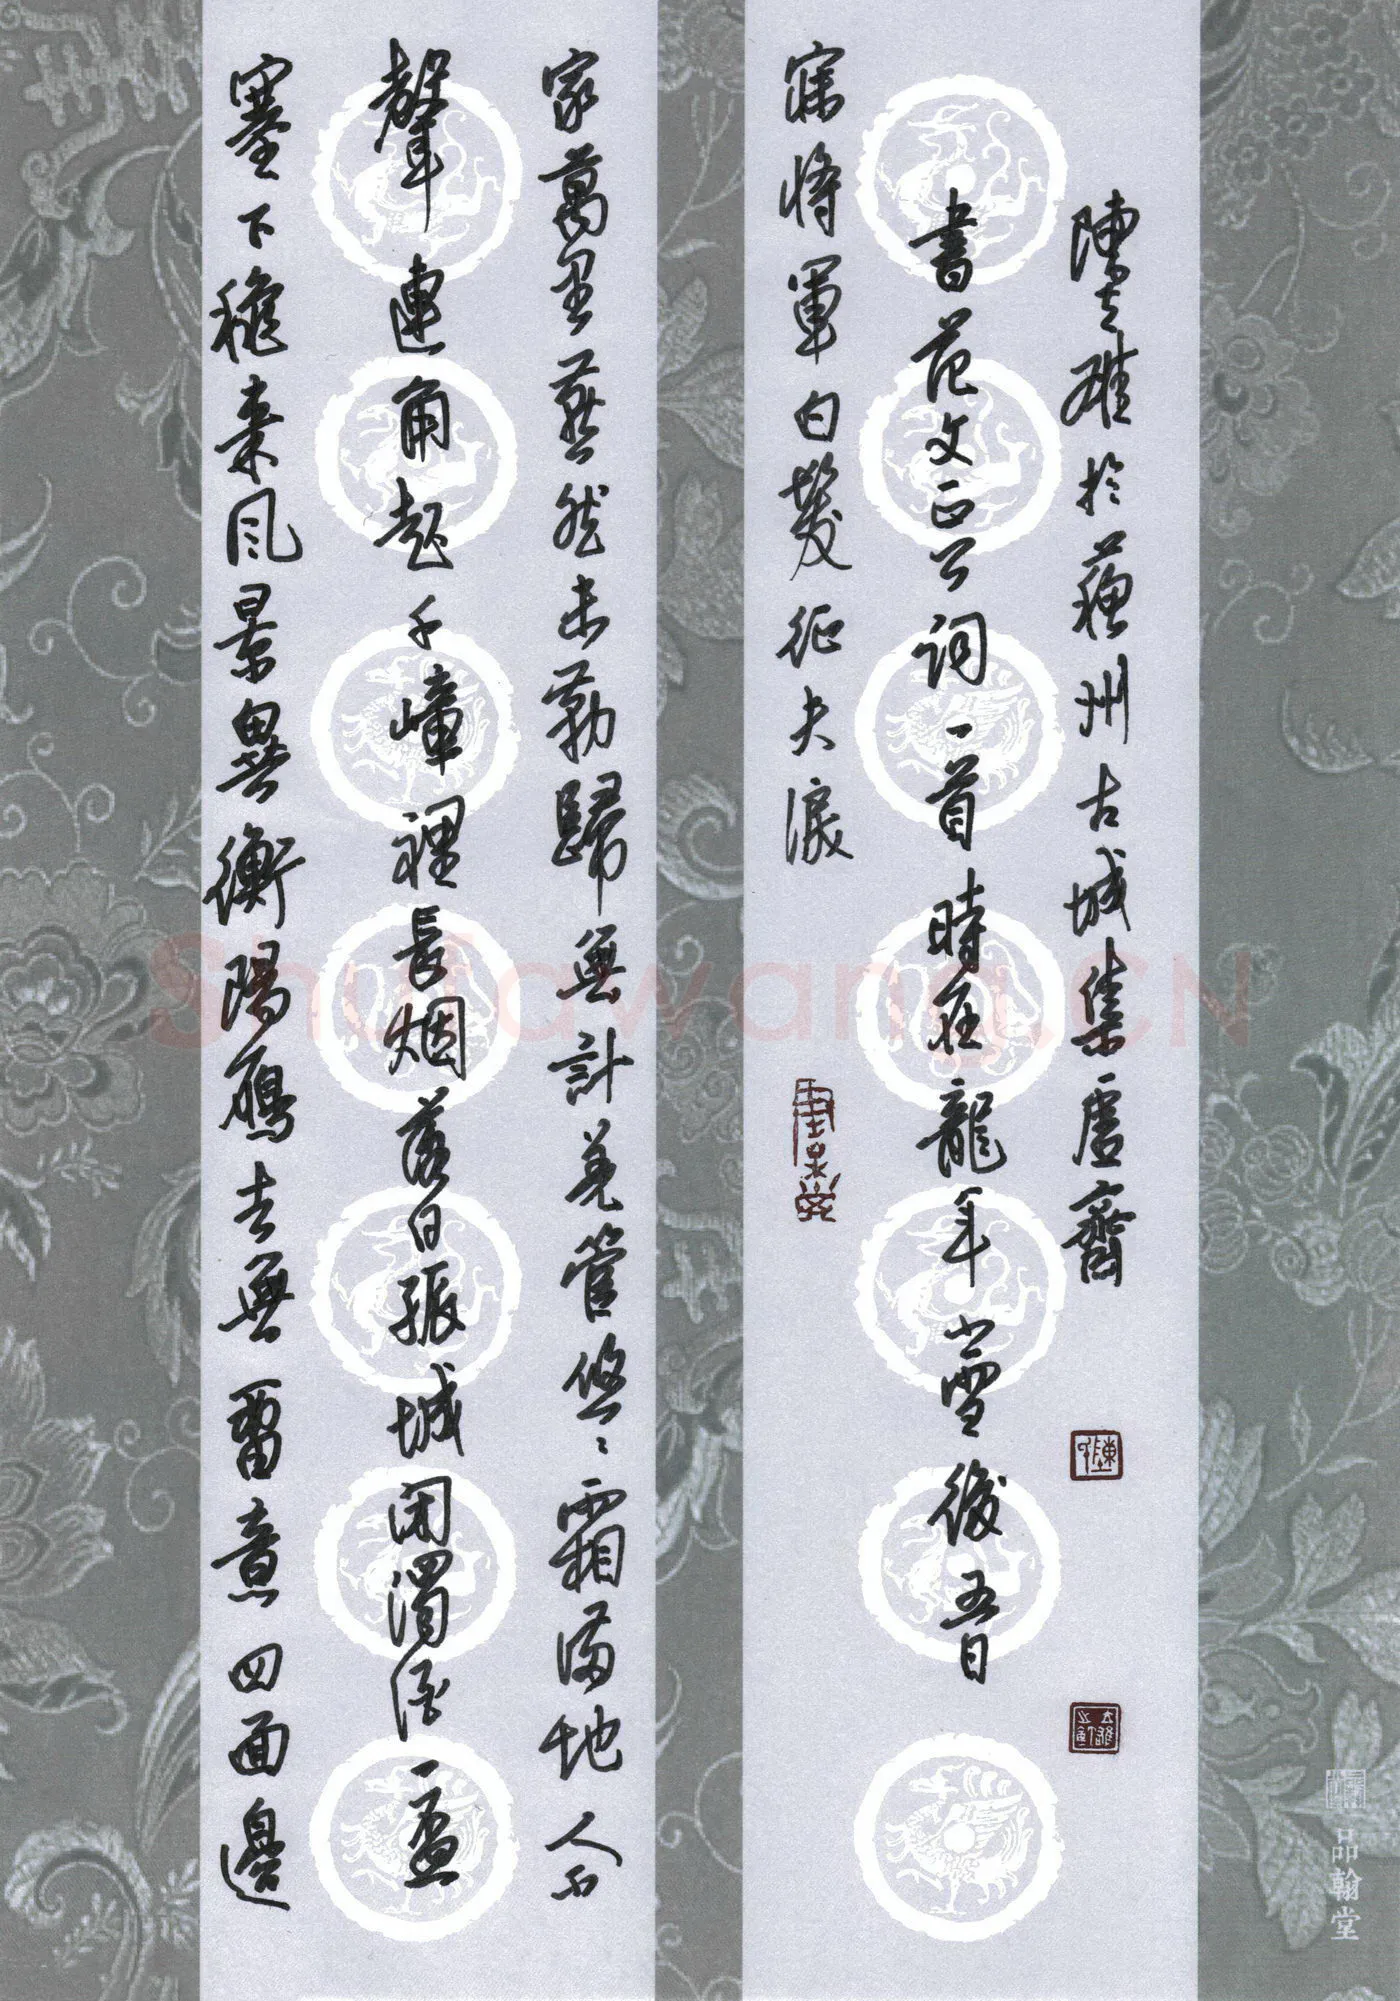 塞下穐來風景異衡陽鴈去無留意四面邊
聲連角起千嶂裡長烟落日孤城闭濁酒一盃
家萬里燕然未勒歸無計羌管悠〻霜满地人不
寐將軍白髮征夫淚
書范文正公詞一首時在龍年小雪後五日
陳雄於蘇州古城集虚齋
品翰堂
Shufawang.CN